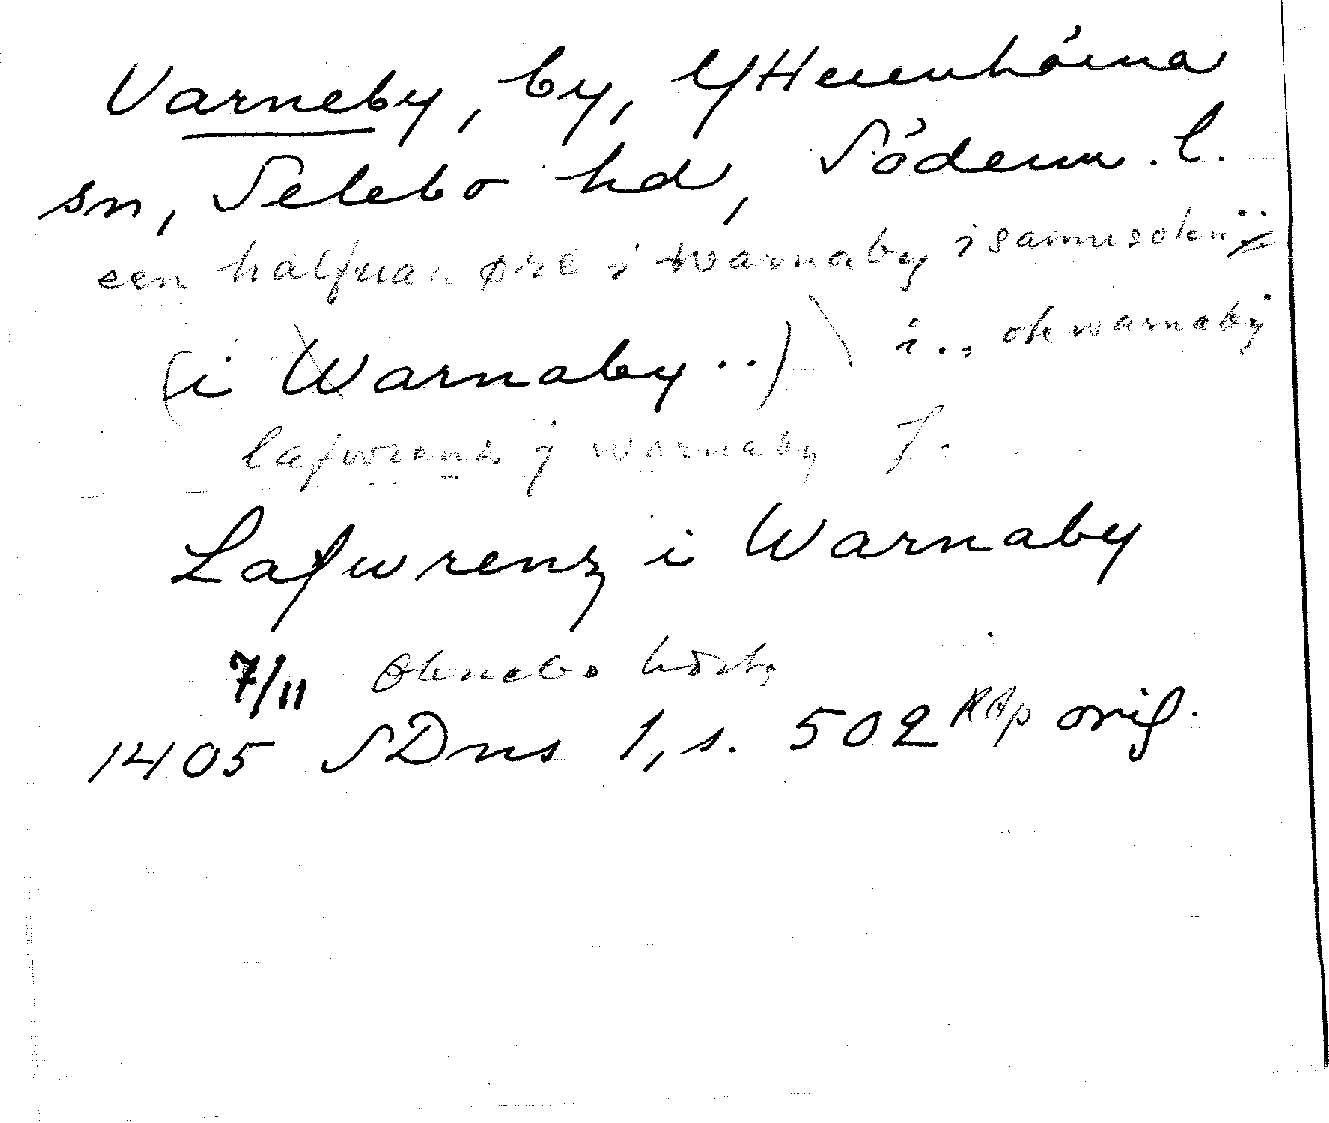 Varneby, by, Ytterenhörna
sn, Selebo hd, Söderm. l.
een halfuan ørel i warnaby i samu sokn
(i Warnaby ..) i .. ok warnaby
lafwrens j warnaby
Lafwrenz i Warnaby
7/11 Øknebo
1405 SDns 1, s. 502 RAp orig.